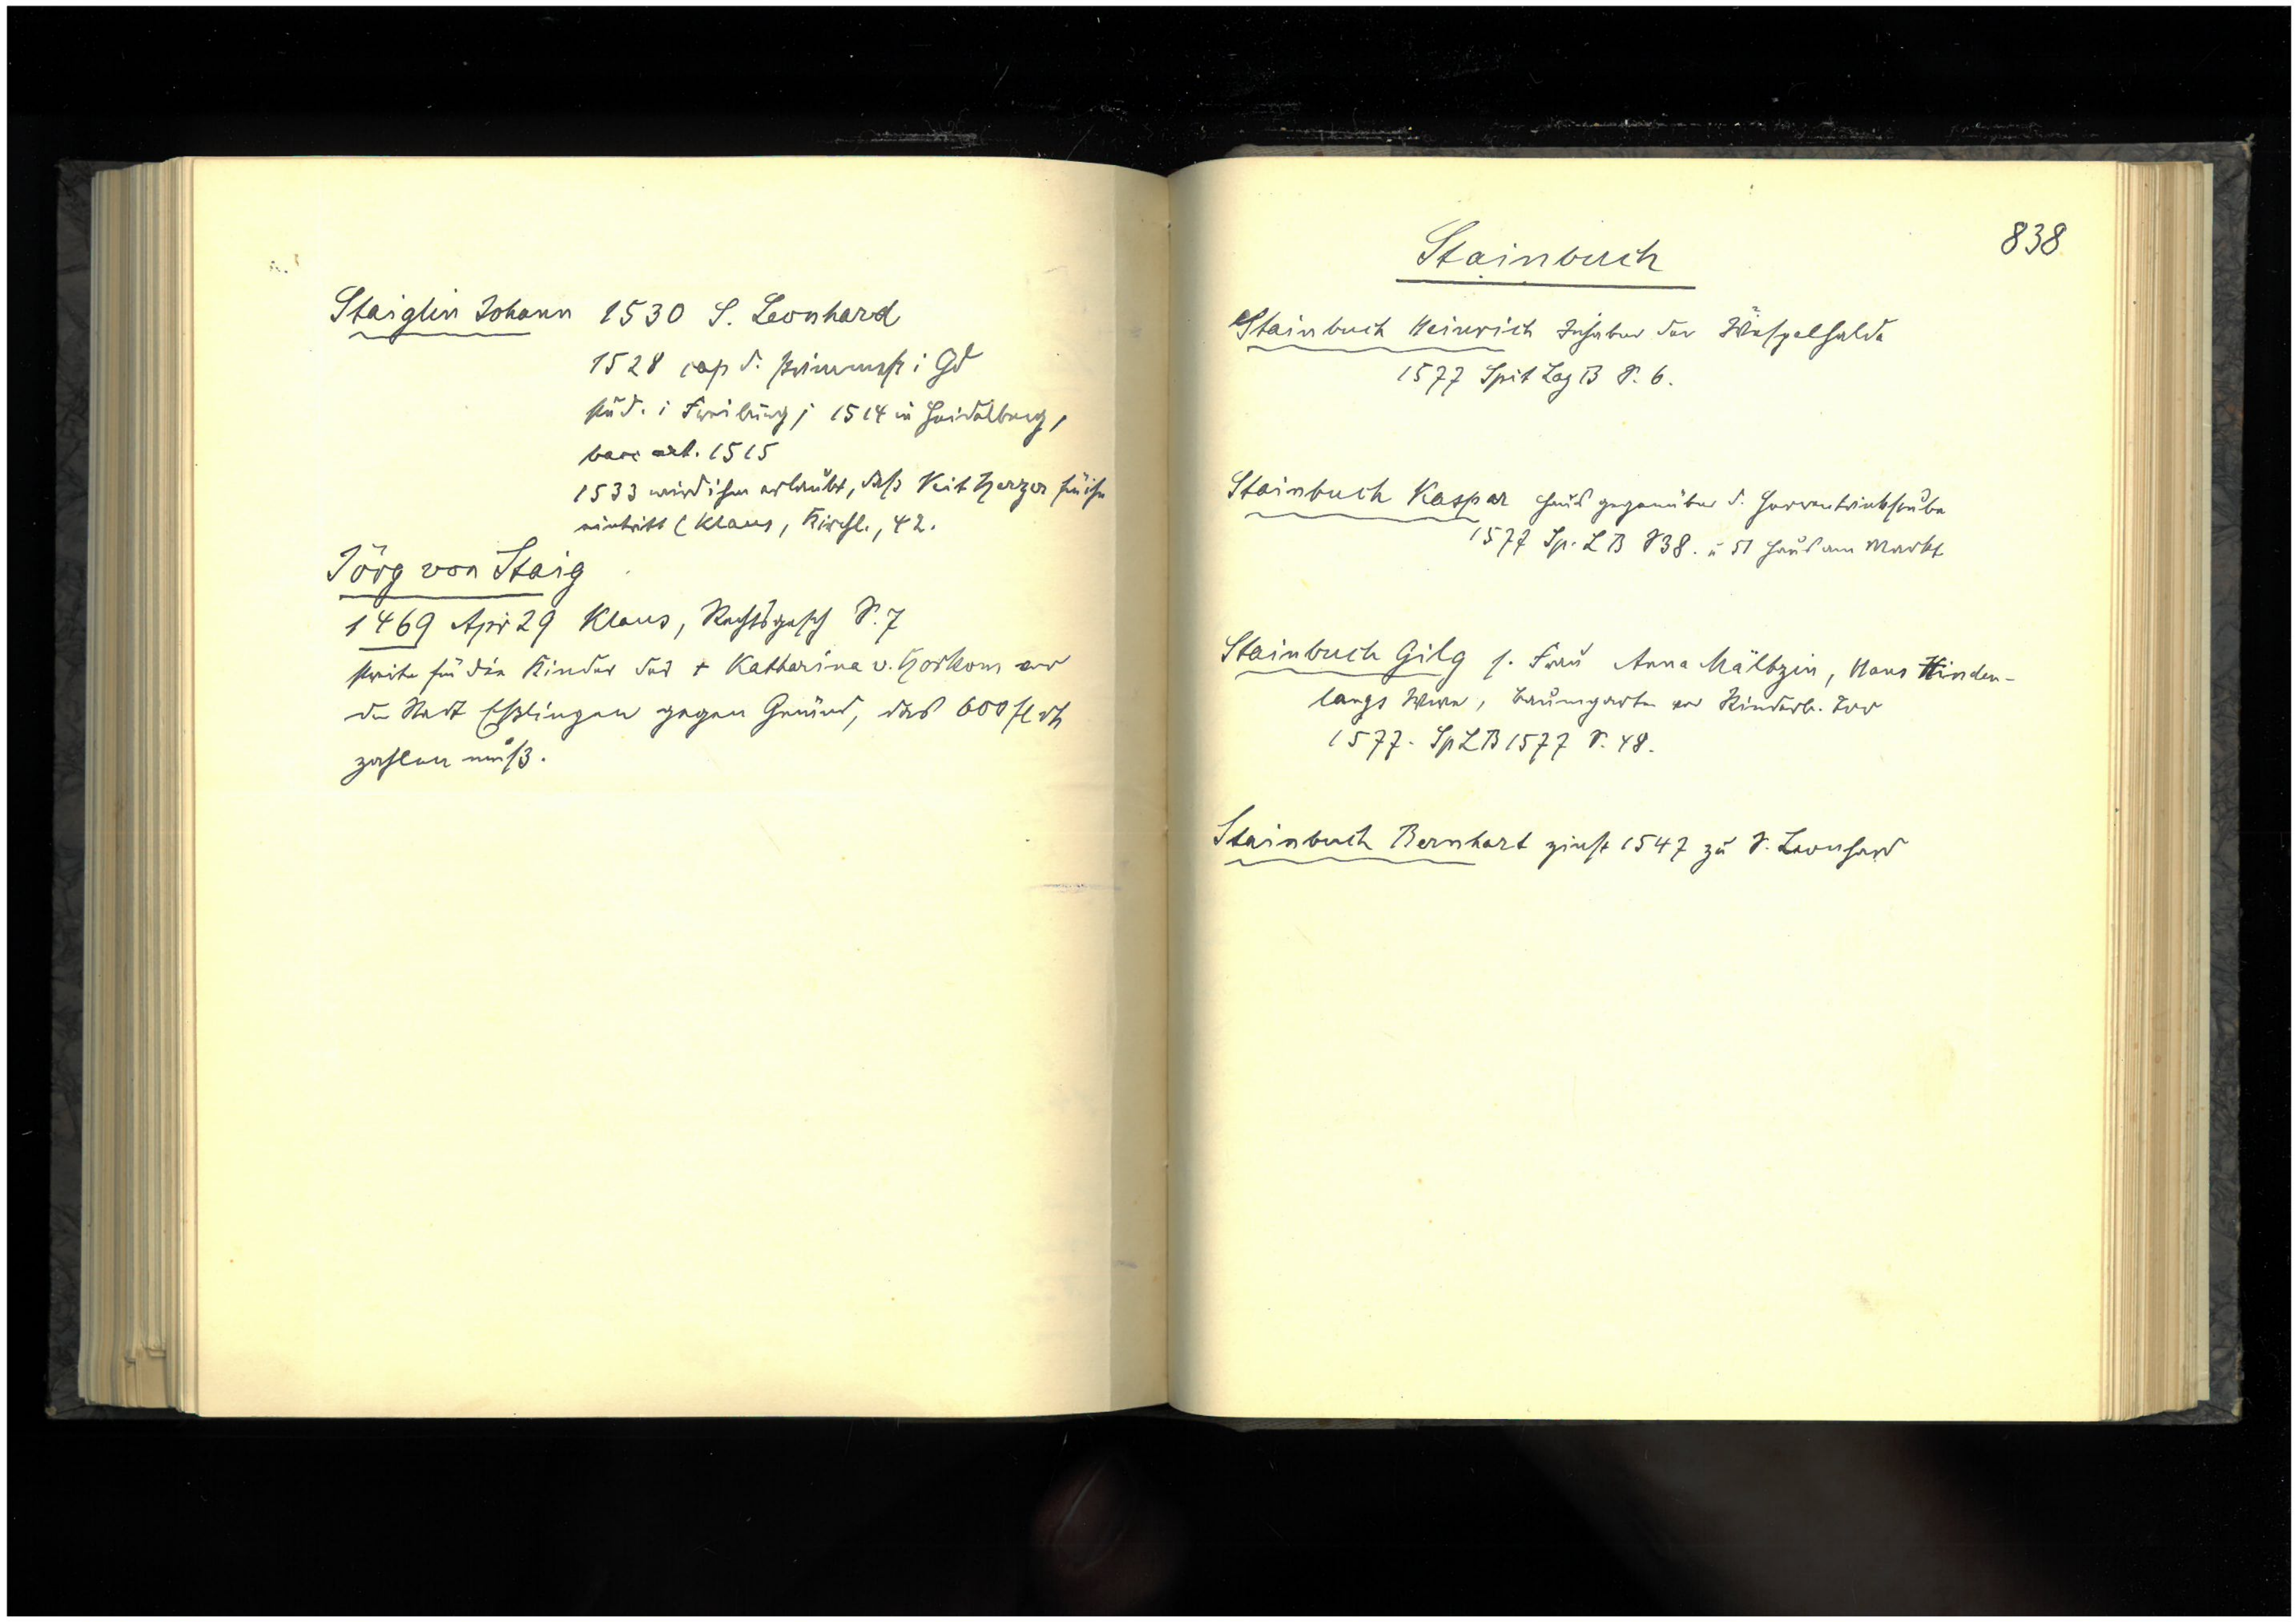 Staiglin Johann 1530 S. Leonhard
1528 cap d. primmess i Gd
stud. i Freiburg; 1514 in Heidelberg,
bacc art. 1515
1533 wird ihm erlaubt, daß Veit Herzer für ihn
eintritt (Klaus, Kirchl., 42.
Jörg von Staig
1469 Apr 29 Klaus, Rechtsgesch S. 7
streite für die Kinder des + Katharina v. Horkom vor
der Stadt Eßlingen gegen Gmünd, das 600 fl rh
zahlen muß.
838
Stainbuch
Stainbuch Heinrich Inhaber der Wespelhalde
1577 Spit Lag B S. 6.
Stainbuch Kaspar Haus gegenüber d. Herrentrinkstube
1577 Sp. L B S 38. u 51 Haus am Markt
Stainbuch Gilg s. Frau Anna Mältzin, Hans Hinden-
langs Wwe, Baumgarten vor Rinderb. Tor
1577. Sp L B 1577 S. 48.
Stainbuch Bernhart zinst 1547 zu S. Leonhard